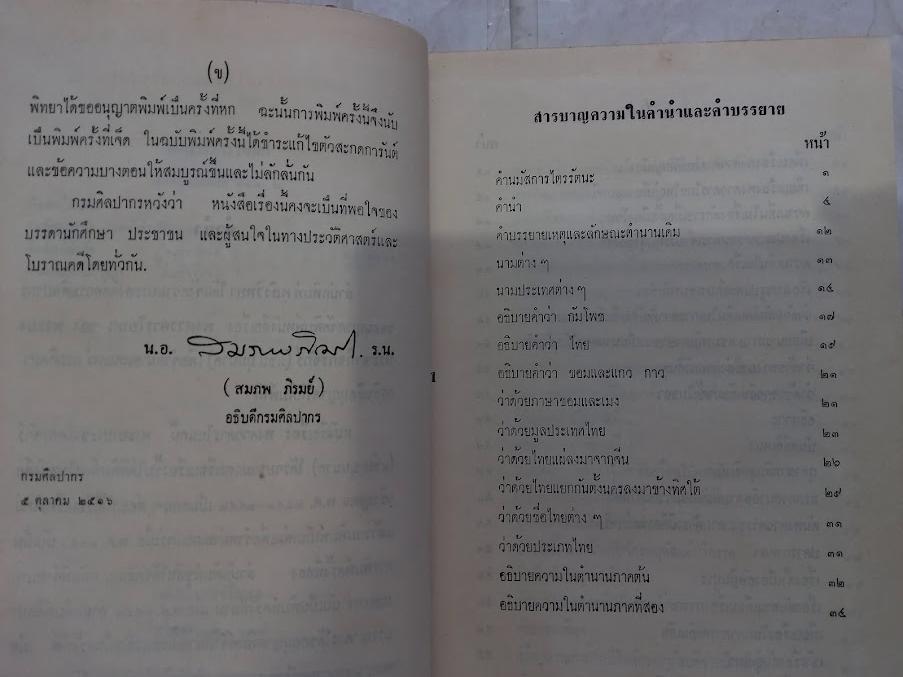 (ข)
พิทยาได้ขออนุญาตพิมพ์เป็นครั้งที่หก ฉะนั้นการพิมพ์ครั้งนี้จึงนับ
เป็นพิมพ์ครั้งที่เจ็ด ในฉบับพิมพ์ครั้งนี้ได้ชำระแก้ไขตัวสะกดการันต์
และข้อความบางตอนให้สมบูรณ์ขึ้นและไม่ลักลั่นกัน
กรมศิลปากรหวังว่า หนังสือเรื่องนี้คงจะเป็นที่พอใจของ
บรรดานักศึกษา ประชาชน และผู้สนใจในทางประวัติศาสตร์และ
โบราณคดีโดยทั่วกัน.
น.อ. สมภพ ภิรมย์ ร.น.
( สมภพ ภิรมย์ )
อธิบดีกรมศิลปากร
กรมศิลปากร
๕ ตุลาคม ๒๕๑๖
สารบาญความในคำนำและคำบรรยาย
หน้า
คำนมัสการไตรรัตนะ ๑
คำนำ ๔
คำบรรยายเหตุและลักษณะตำนานเดิม ๑๒
นามต่าง ๆ ๑๓
นามประเทศต่าง ๆ ๑๔
อธิบายคำว่า กัมโพช ๑๗
อธิบายคำว่า ไทย ๑๙
อธิบายคำว่า ขอมและแกว กาว ๒๑
ว่าด้วยภาษาขอมและเมง ๒๑
ว่าด้วยมูลประเทศไทย ๒๓
ว่าด้วยไทยแผ่ลงมาจากจีน ๒๖
ว่าด้วยไทยแยกกันตั้งนครลงมาข้างทิศใต้ ๒๙
ว่าด้วยชื่อไทยต่าง ๆ ๓๑
ว่าด้วยประเภทไทย ๓๑
อธิบายความในตำนานภาคต้น ๓๒
อธิบายความในตำนานภาคที่สอง ๓๔